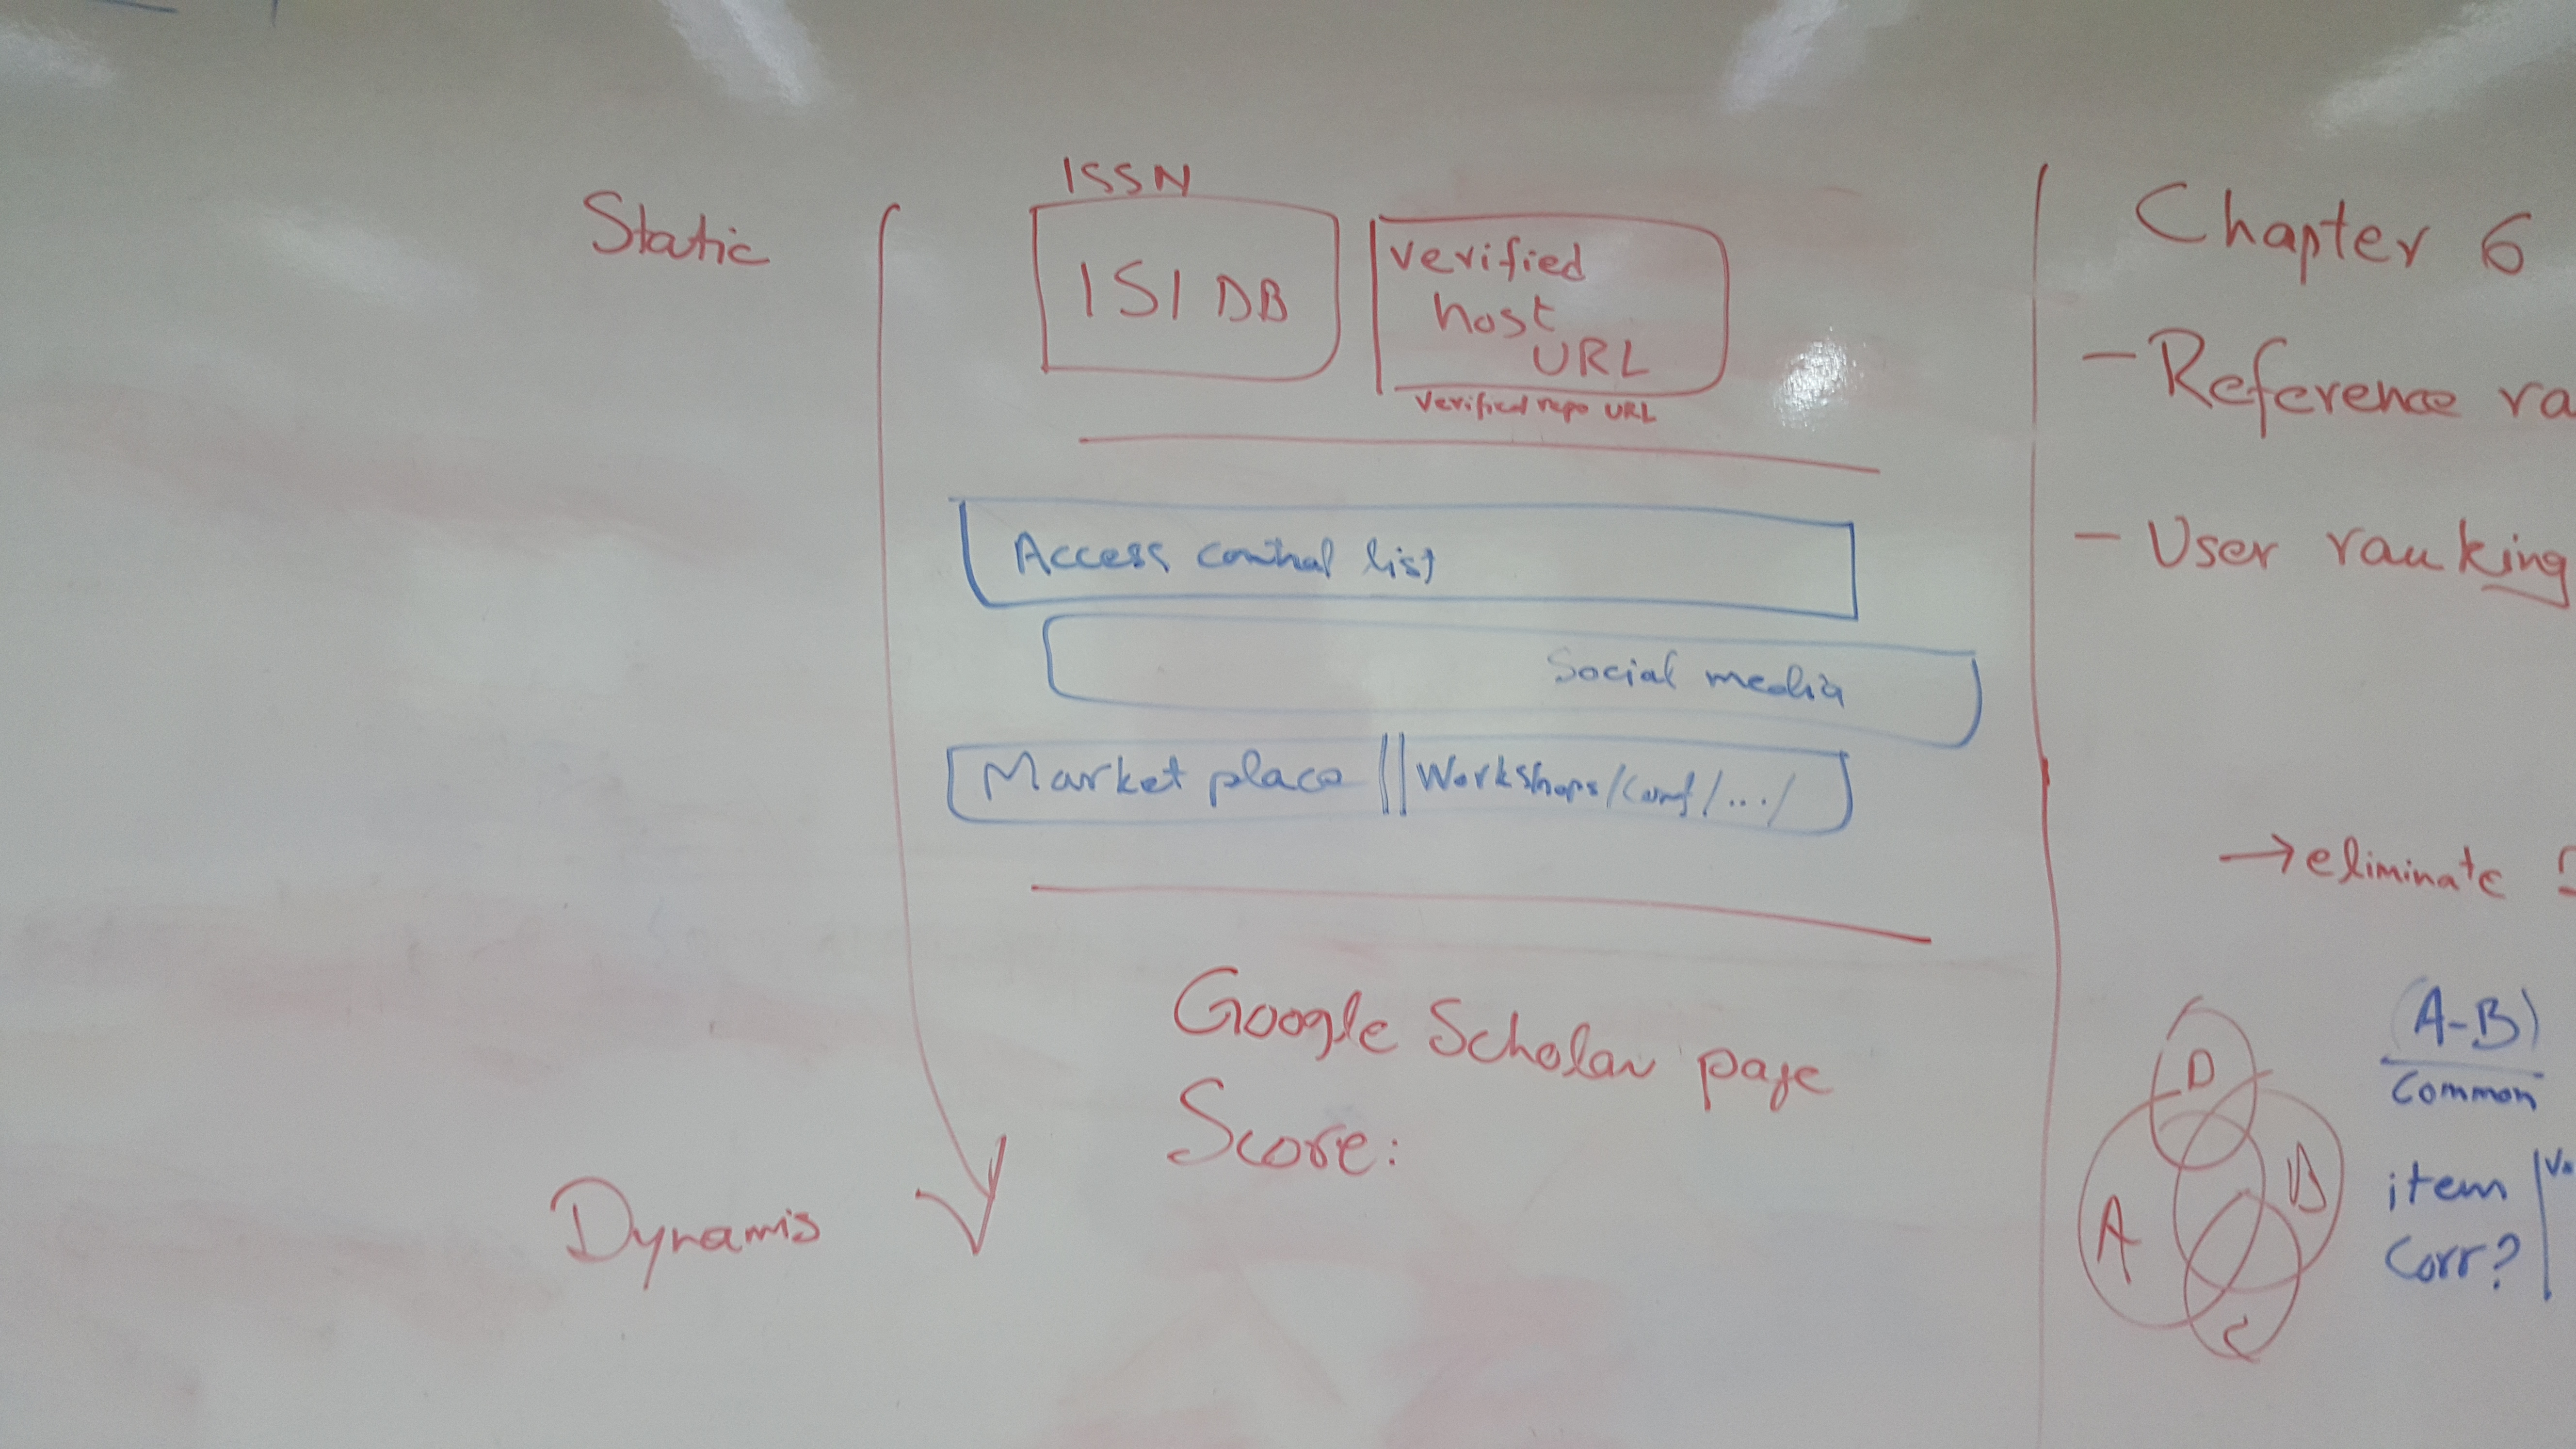 Static
ISSN
ISI DB
verified
host
URL
Verified repo URL
Access control list
Social media
Market place || Workshops/conf/.../
Google Scholar page
Score:
Dynamis
Chapter 6
- Reference ra
- User ranking
→ eliminate
D
A
B
C
(A-B)
Common
item
Corr?